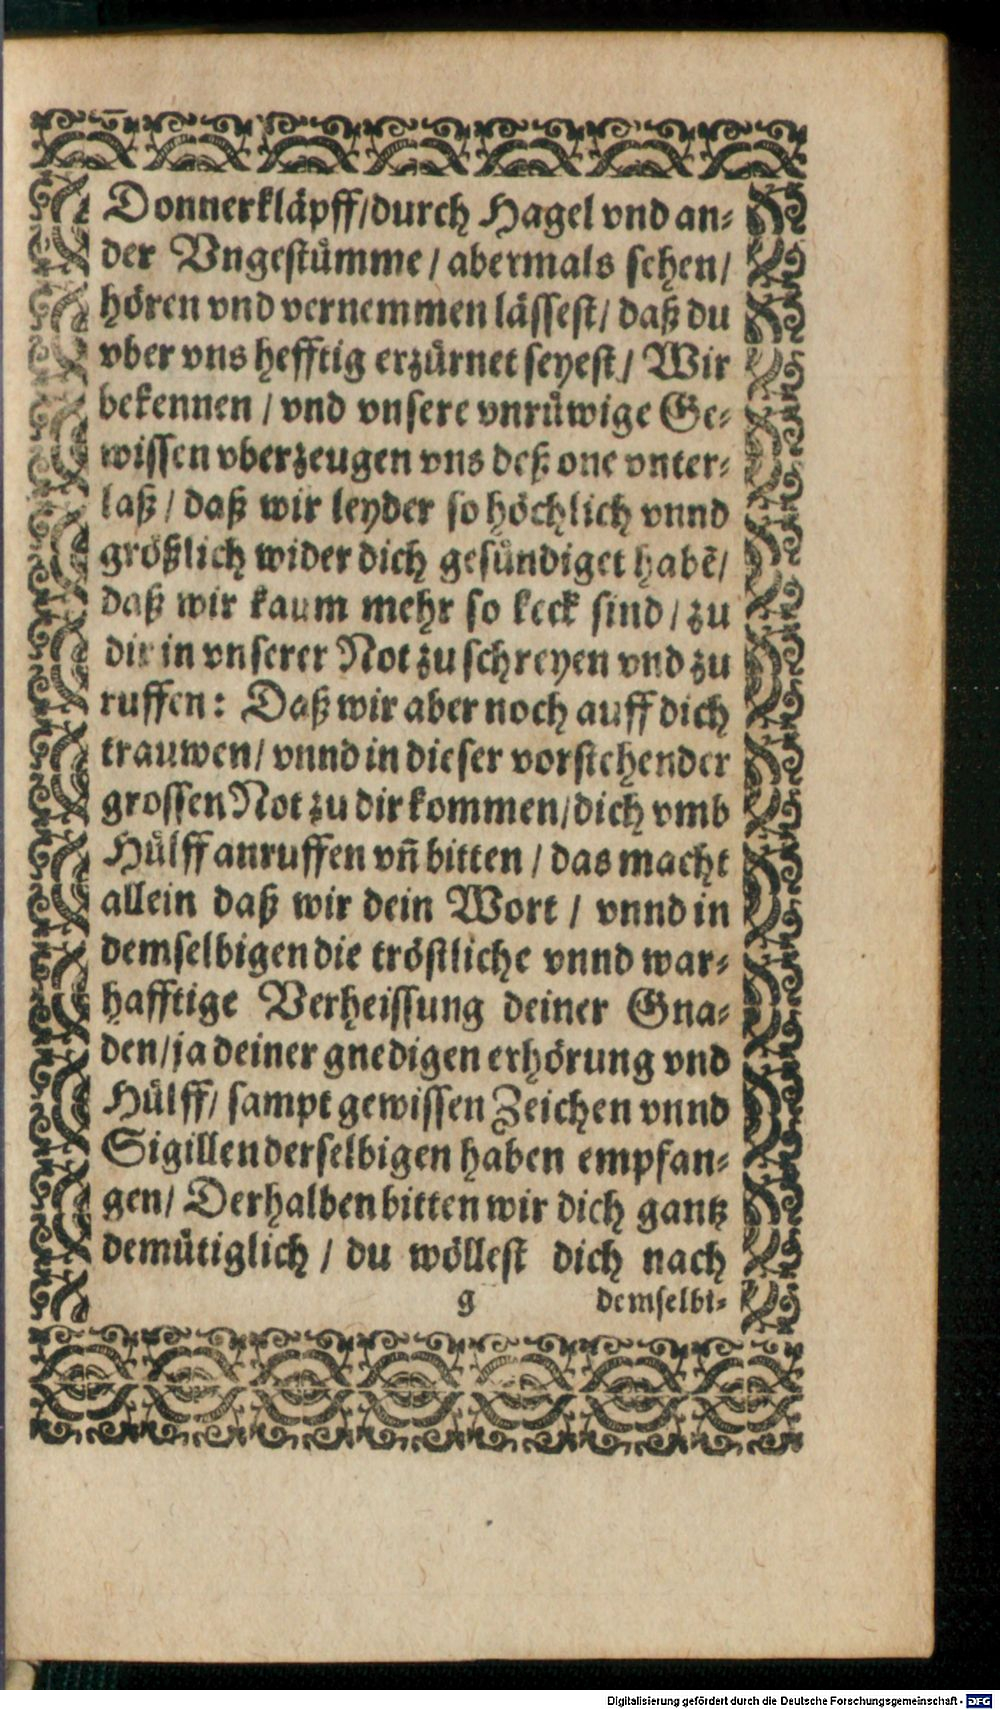 Donnerkläpff/durch Hagel vnd an-
der Vngestuͤmme / abermals sehen/
hoͤren vnd vernemmen laͤssest/ daß du
vber vns hefftig erzuͤrnet seyest/ Wir
bekennen / vnd vnsere vnruͤwige Ge-
wissen vberzeugen vns deß one vnter-
laß / daß wir leyder so hoͤchlich vnnd
groͤßlich wider dich gesuͤndiget habẽ/
daß wir kaum mehr so keck sind / zu
dir in vnserer Not zu schreyen vnd zu
ruffen: Daß wir aber noch auff dich
trauwen/ vnnd in dieser vorstehender
grossen Not zu dir kommen/dich vmb
Huͤlff anruffen vñ bitten / das macht
allein daß wir dein Wort / vnnd in
demselbigen die troͤstliche vnnd war-
hafftige Verheissung deiner Gna-
den/ja deiner gnedigen erhoͤrung vnd
Huͤlff/ sampt gewissen Zeichen vnnd
Sigillen derselbigen haben empfan-
gen/ Derhalben bitten wir dich gantz
demuͤtiglich / du woͤllest dich nach
g demselbi-
Digitalisierung gefördert durch die Deutsche Forschungsgemeinschaft - DFG